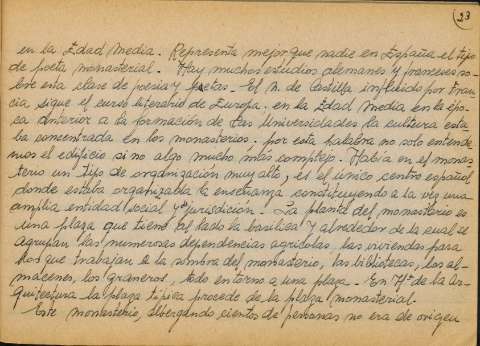 23
en la Edad Media. Representa mejor que nadie en España el tipo
de poeta monasterial. Hay muchos estudios alemanes y franceses so-
bre esta clase de poesia y poetas. El n. de Castilla influido por Fran
cia sigue el curso literario de Europa. en la Edad Media en la épo
ca anterior a la formación de las Universidades la cultura esta
ba concentrada en los monasterios. por esta palabra no solo entende
mos el edificio si no algo mucho mas complejo. Habia en el monas
terio un tipo de organización muy alto, es el unico centro español
donde estaba organizada la enseñanza constituyendo a la vez una
amplia entidad social y jurisdición. La planta del monasterio es
una plaza que tiene al lado la basilica y alrededor de la cual se
agrupan las numerosas dependencias agricolas, las viviendas para
los que trabajan a la sombra del monasterio, las bibliotecas, los al-
macenes, los graneros, todo entorno a una plaza. En Hª de la Ar-
quitectura la plaza tipica procede de la plaza monasterial.
Este monasterio, albergando cientos de personas no era de origen